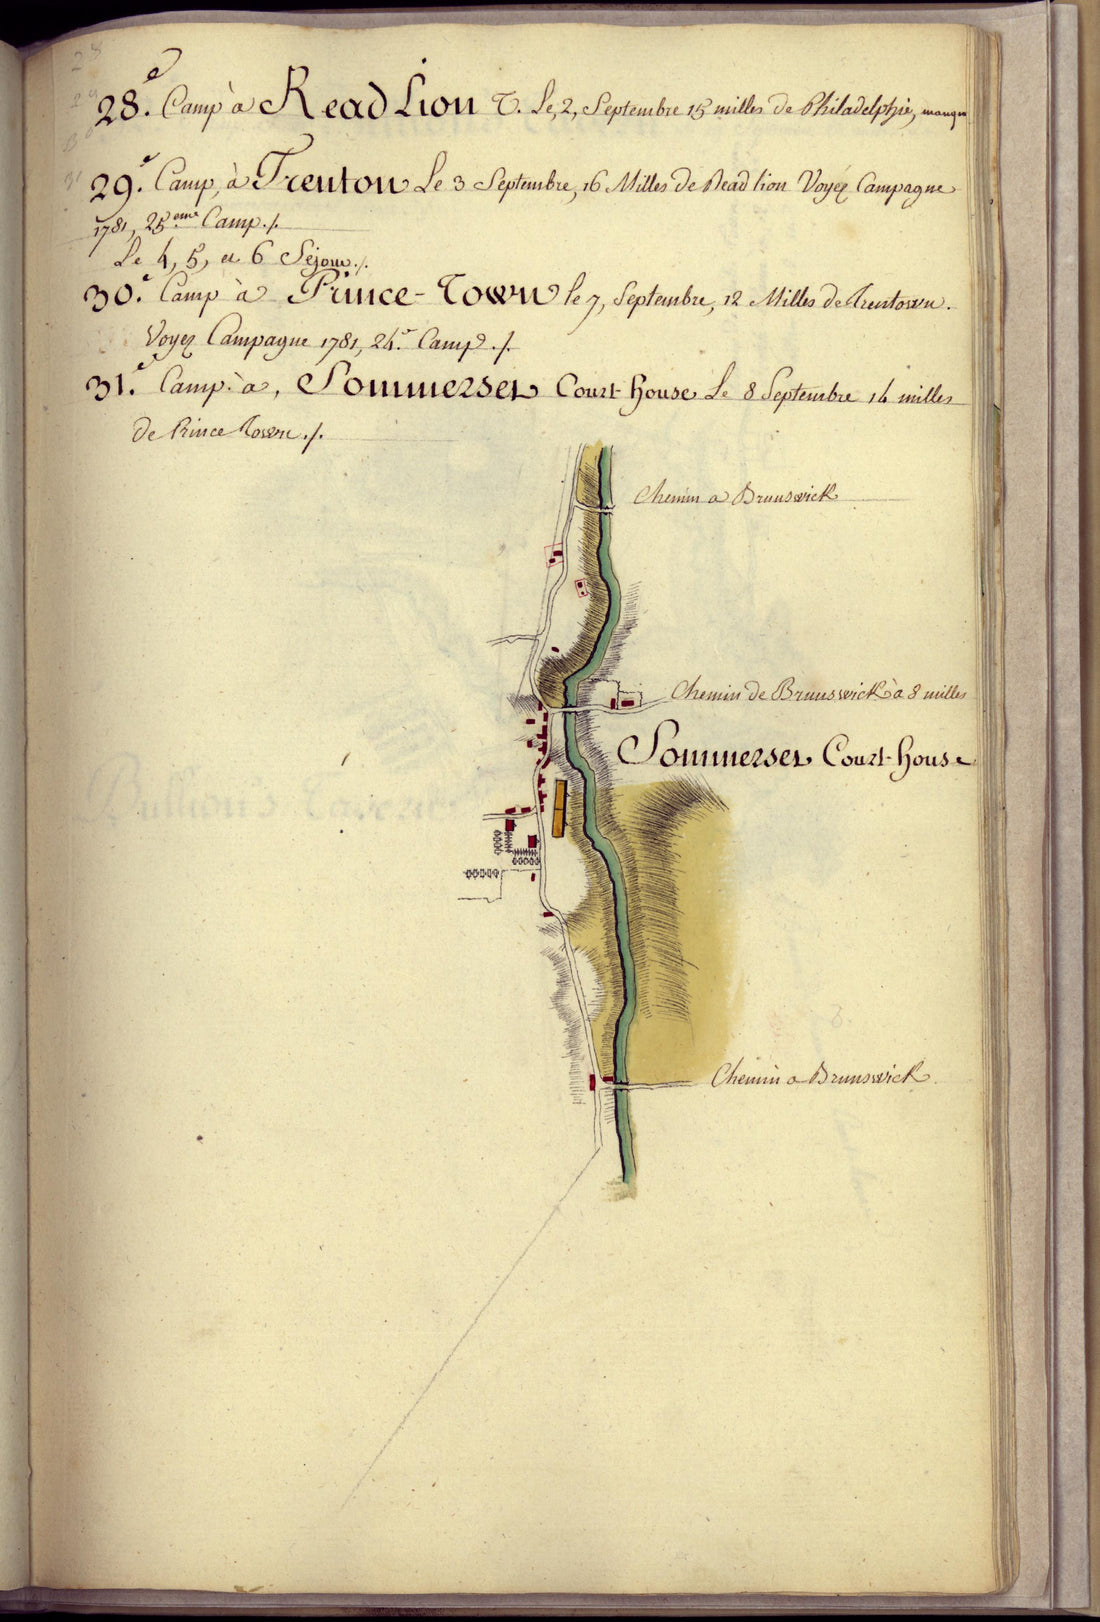 28.e Camp à Read Lion T. Le, 2, Septembre 15 milles de Philadelphie, manque
29.e Camp, à Trenton Le 3 Septembre, 16 Milles de Read lion Voyez Campagne
1781, 25eme Camp./.
Le 4, 5, et 6 Séjour./.
30.e Camp à Prince-Town le 7, Septembre, 12 Milles de Trentown.
Voyez Campagne 1781, 24.e Camp./.
31.e Camp à, Sommerset Court-house Le 8 Septembre 14 milles
de Prince Town./.
Chemin a Brunswick
Chemin de Brunswick à 8 milles
Sommerset Court-house
Chemin a Brunswick